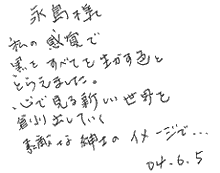 永島様
私の感覚で
黒をすべてを生かす色と
とらえました。
心で見る新しい世界を
創り出していく
素敵な紳士のイメージで…
04.6.5